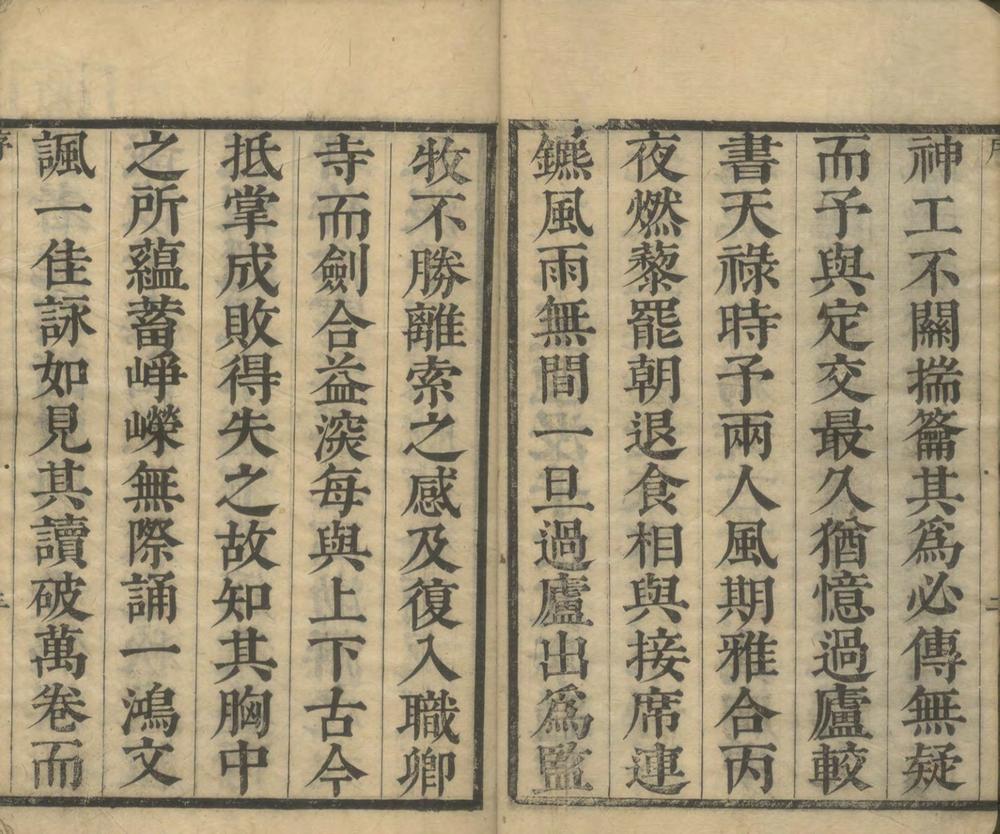 神工不關揣籥其爲必傳無疑
而予與定交最久猶憶過廬較
書天祿時予兩人風期雅合丙
夜燃藜罷朝退食相與接席連
鑣風雨無間一旦過廬出爲監
牧不勝離索之感及復入職卿
寺而劍合益深每與上下古今
抵掌成敗得失之故知其胸中
之所蘊蓄崢嶸無際誦一鴻文
諷一佳詠如見其讀破萬卷而